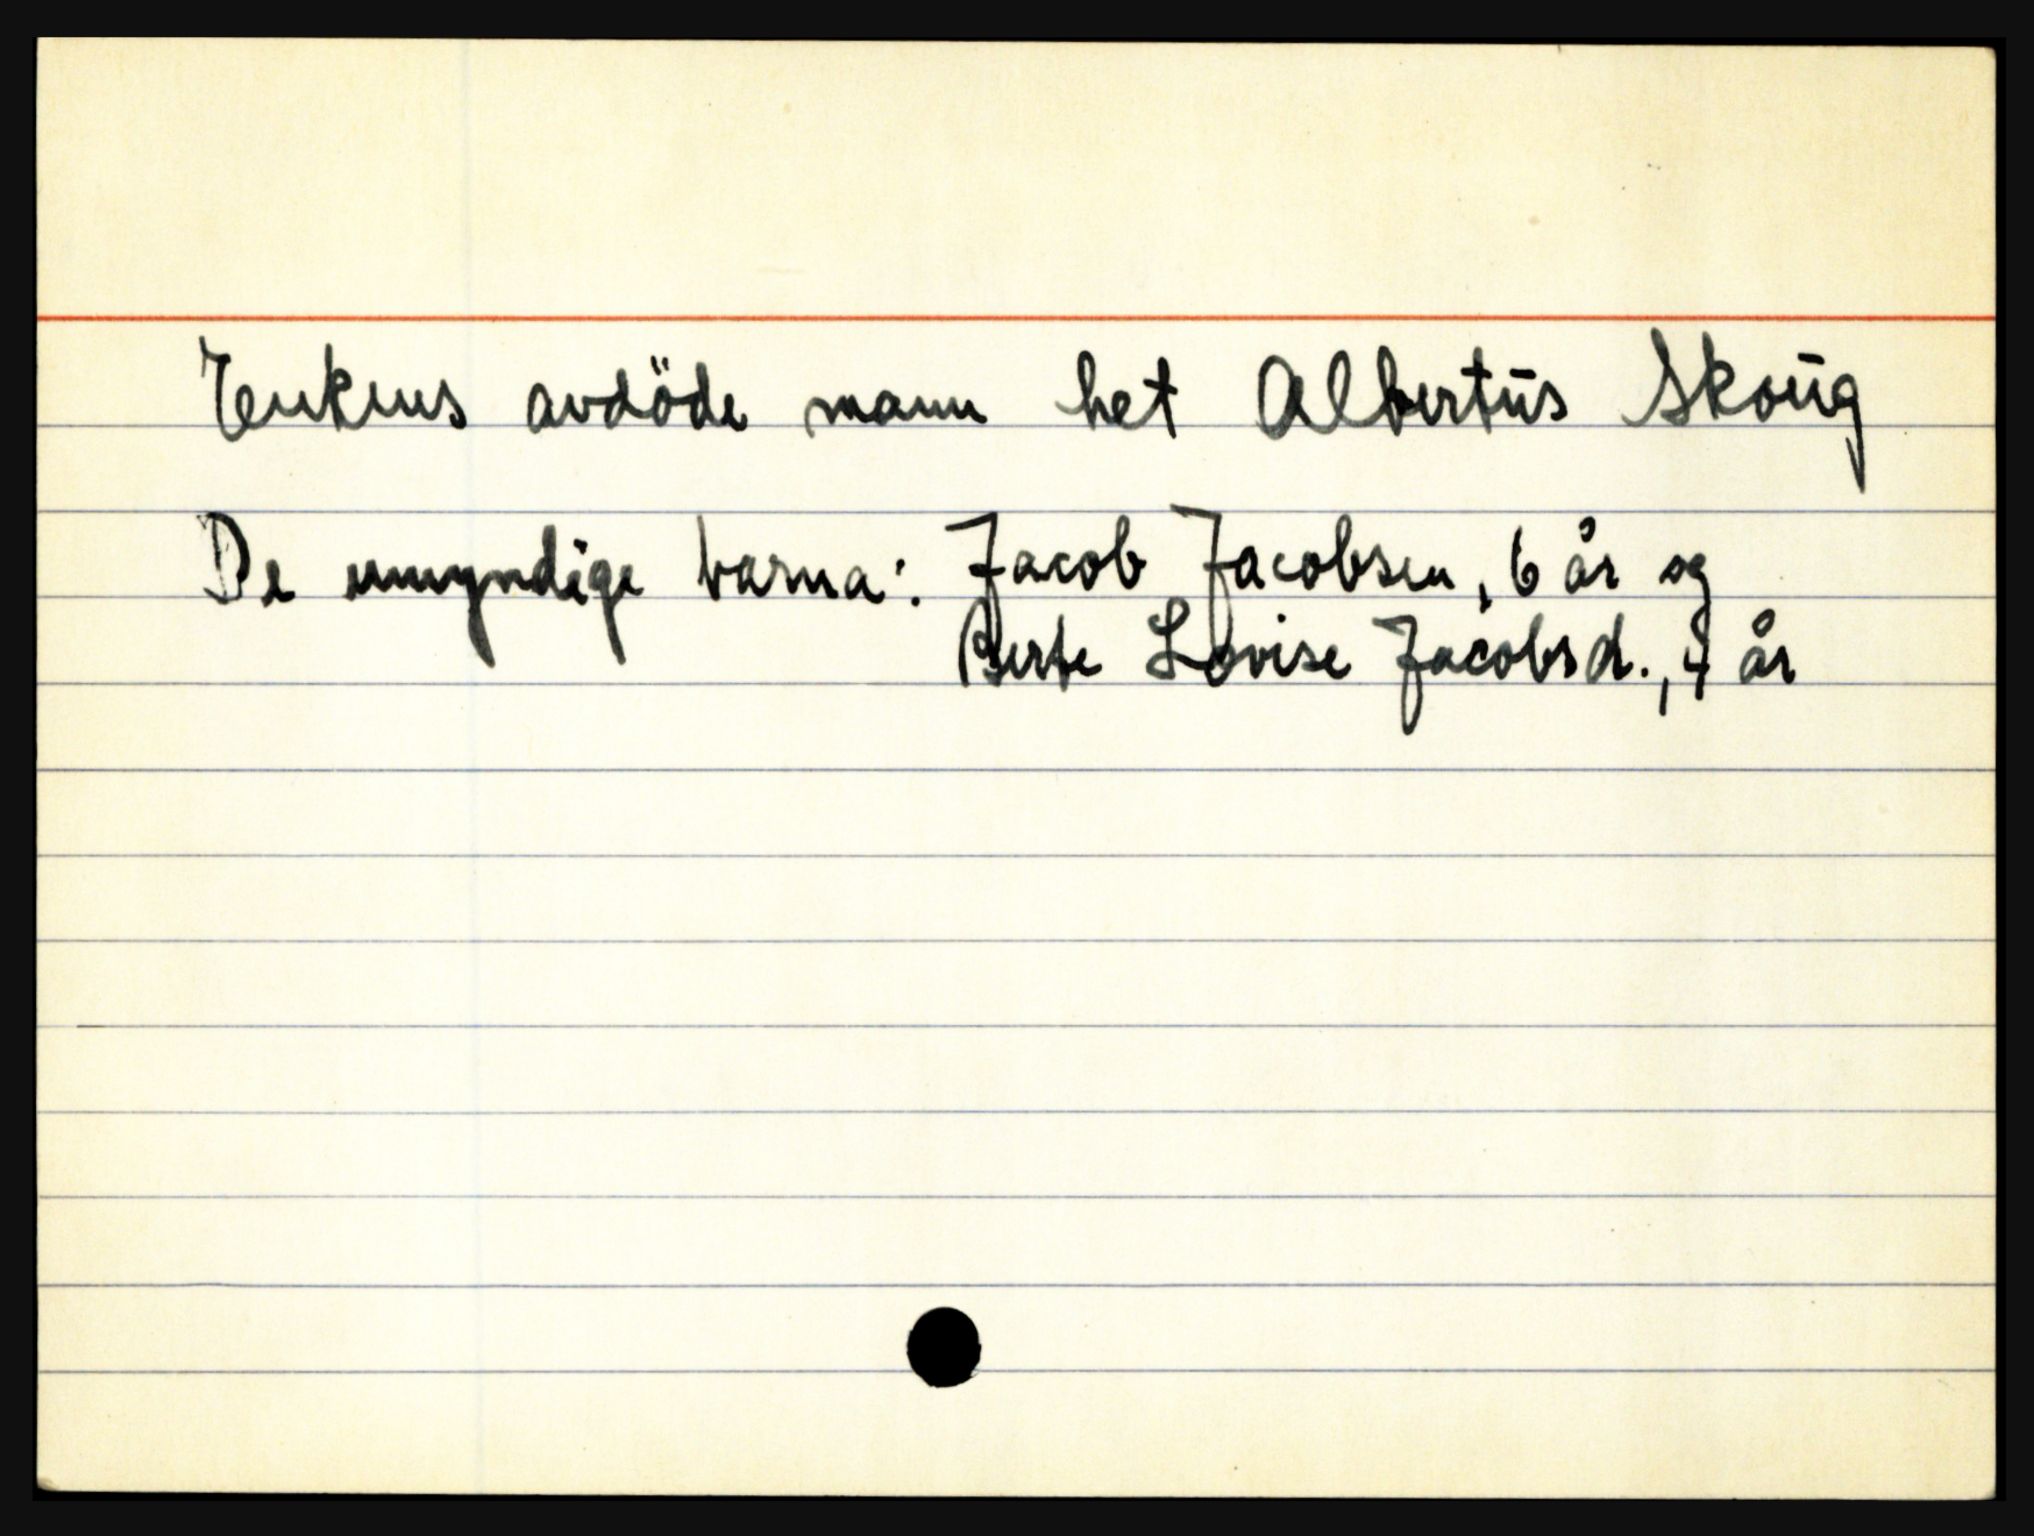 Enkens avdöde mann het Albertūs Skoūg
De umyndige barna: Jacob Jacobsen, 6 år og
Berte Lovise Jacobsd., 4 år